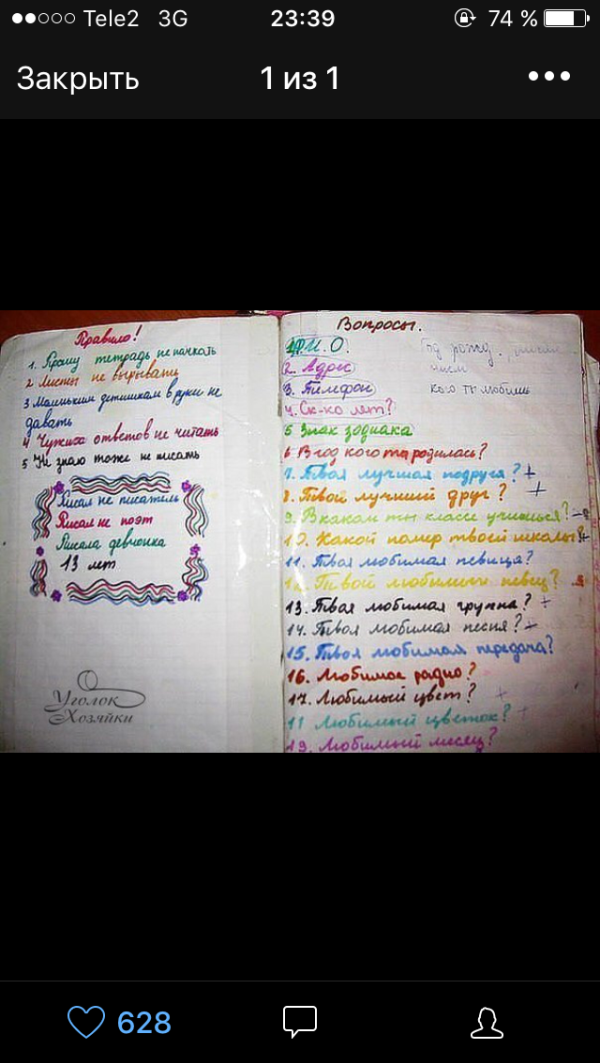 Tele2 3G 23:39 74 %
Закрыть 1 из 1
Правило!
1. Прошу тетрадь не пачкать
2 Листы не вырывать
3 Маленьким детишкам в руки не
давать
4 Чужих ответов не читать
5 Не знаю тоже не писать
Писал не писатель
Писал не поэт
Писала девчонка
13 лет
Уголок
Хозяйки
Вопросы.
1 Ф.И.О.
Год рожд.
2. Адрес
3. Тилифон
кого ты любишь
4. Ск-ко лет?
5 Знак зодиака
6 В год кого ты родилась?
7. Твоя лучшая подруга? +
8. Твой лучший друг? +
9. В каком ты классе учишься?
10. Какой номир твоей школы? +
11. Твоя любимая певица?
12. Твой любимый певец?
13. Твоя любимая группа? +
14. Твоя любимая песня? +
15. Твоя любимая передача?
16. Любимое радио?
17. Любимый цвет? +
11 Любимый цветок? +
19. Любимый месяц?
628